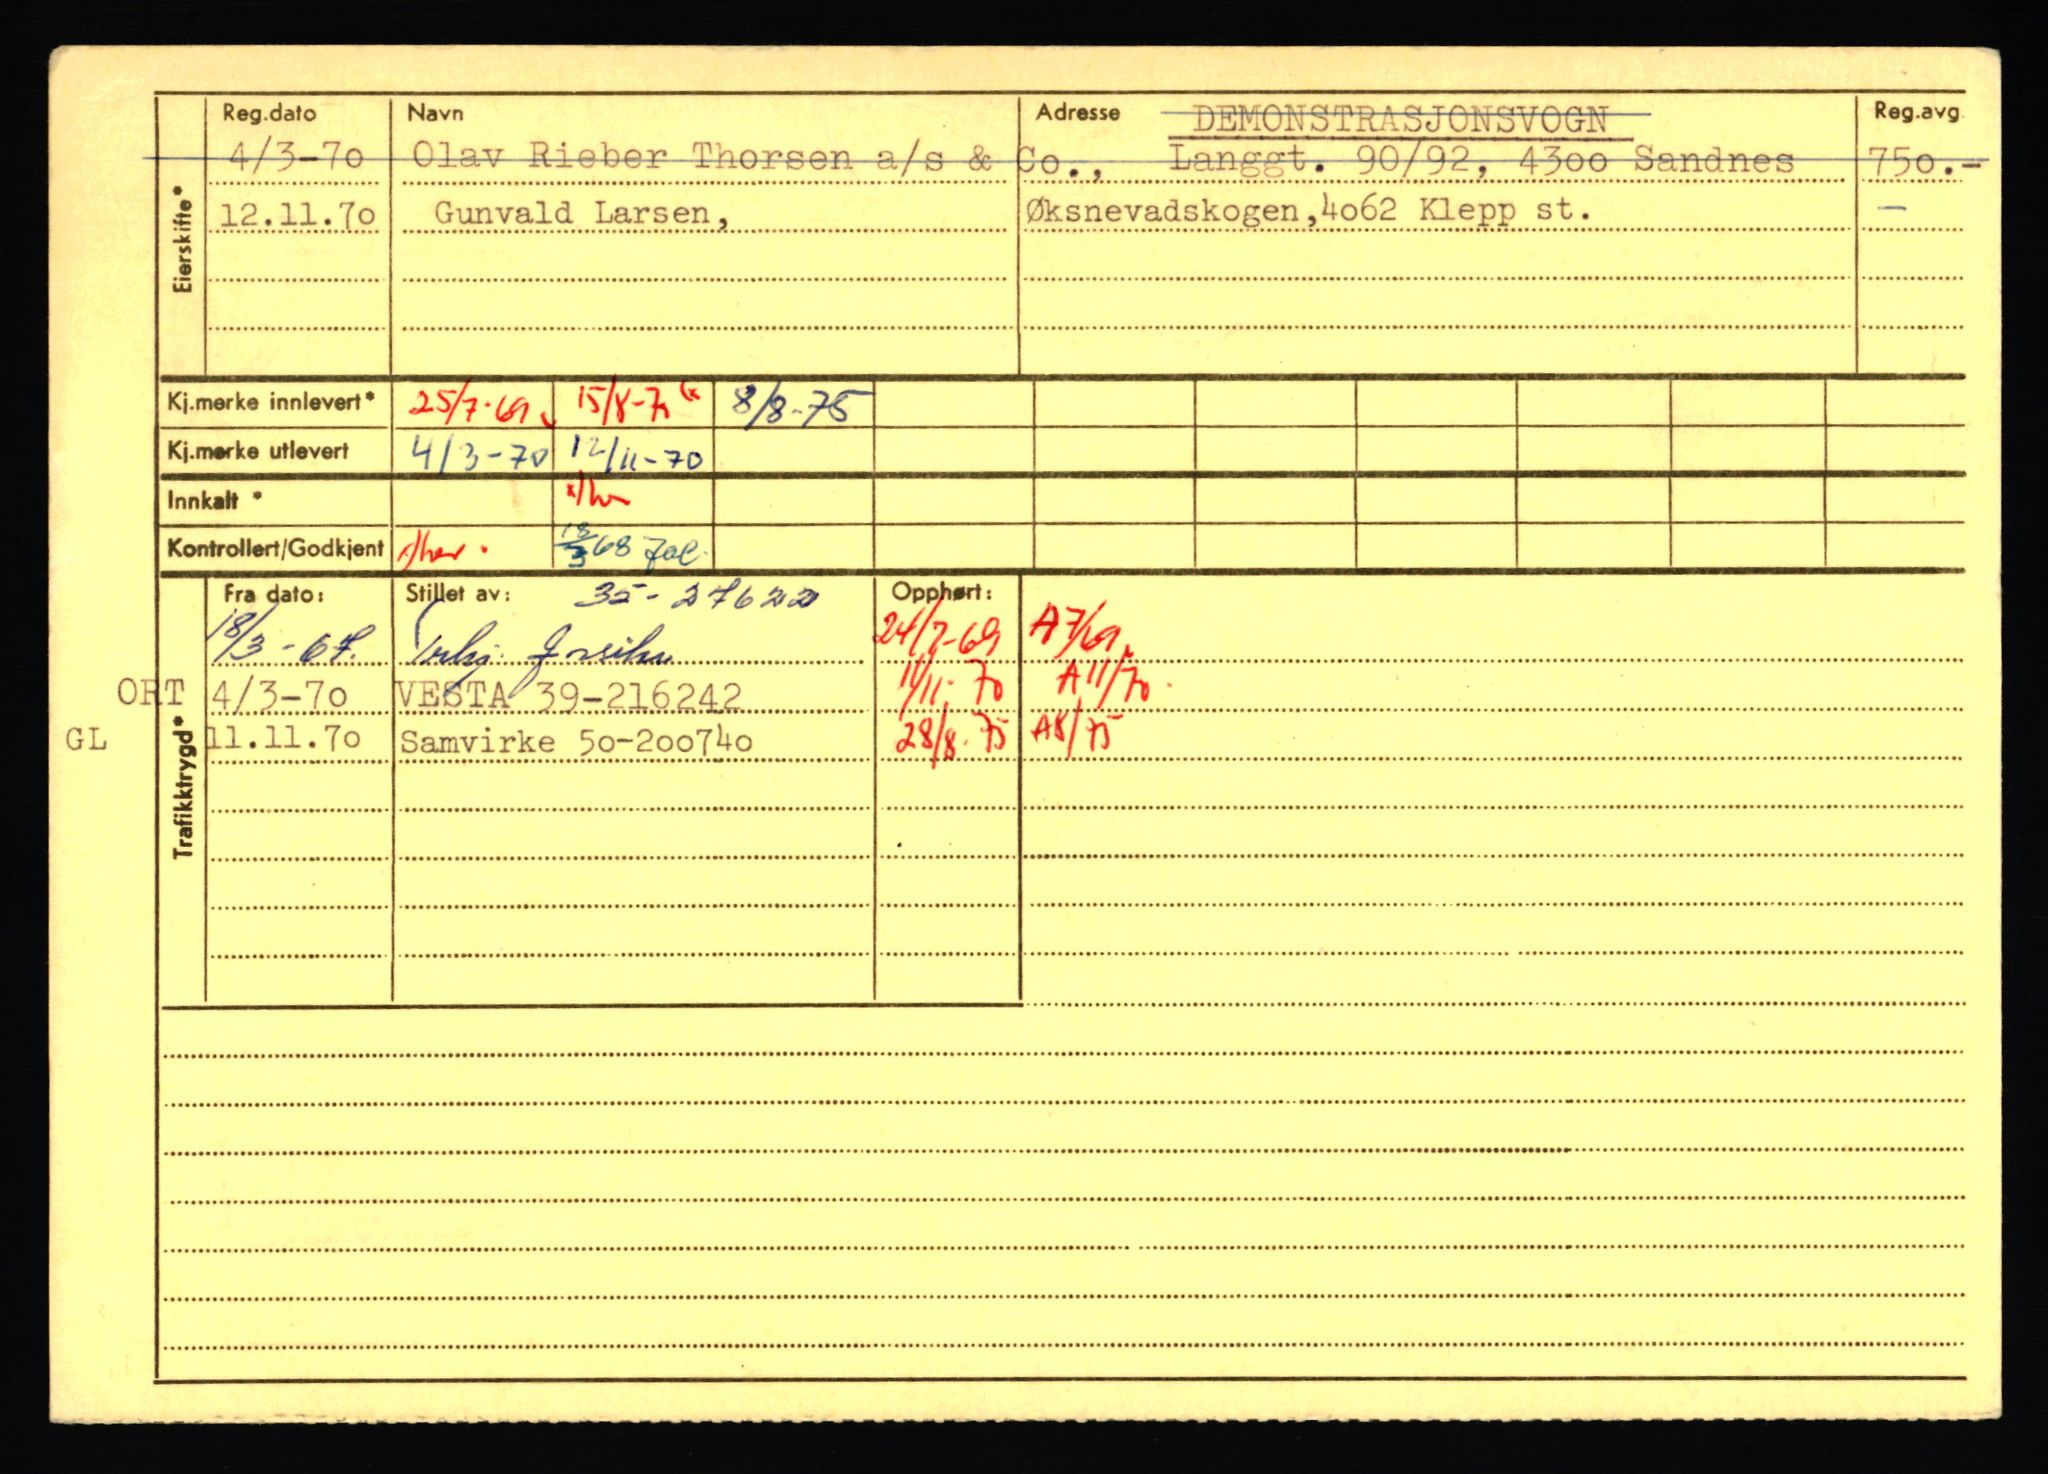 Reg.dato Navn Adresse DEMONSTRASJONSVOGN Reg.avg.
4/3-70 Olav Rieber Thorsen a/s & Co., Langgt. 90/92, 4300 Sandnes 750.-
12.11.70 Gunvald Larsen, Øksnevadskogen,4062 Klepp st. —
Eierskifte*
Kj.merke innlevert* 25/7-69 15/8-70 8/8-75
Kj.merke utlevert 4/3-70 12/11-70
Innkalt *
Kontrollert/Godkjent 68
Fra dato: Stillet av: 35-27622 Opphørt:
18/3-67. 24/7-69 A7/69
ORT 4/3-70 VESTA 39-216242 11/11-70 A11/70
GL 11.11.70 Samvirke 50-200740 28/8-75 A8/75
Trafikktrygd*